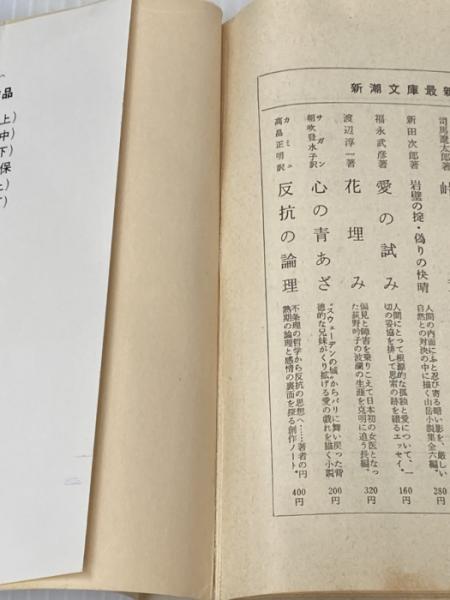 新潮文庫最新
司馬遼太郎著
峠
280
新田次郎著
岩壁の掟・偽りの快晴
人間の内面にふと忍び寄る暗い影を、厳しい
自然との対決の中に描く山岳小説集全六編。
160
福永武彦著
愛の試み
人間にとって根源的な孤独と愛について、一
切の妥協を排して思索の跡を綴るエッセイ。
320
渡辺淳一著
花埋み
偏見と障害を乗りこえて日本初の女医となっ
た荻野吟子の波瀾の生涯を克明に追う長編。
サガン
朝吹登水子訳
心の青あざ
"スウェーデンの城"からパリに舞い戻った背
徳的な兄妹がくり拡げる愛の戯れを描く小説
200円
カミュ
高畠正明訳
反抗の論理
不条理の哲学から反抗の思想へ……著者の円
熟期の論理と感情の裏面を探る創作ノート。
400円
品
上）
中）
下）
保